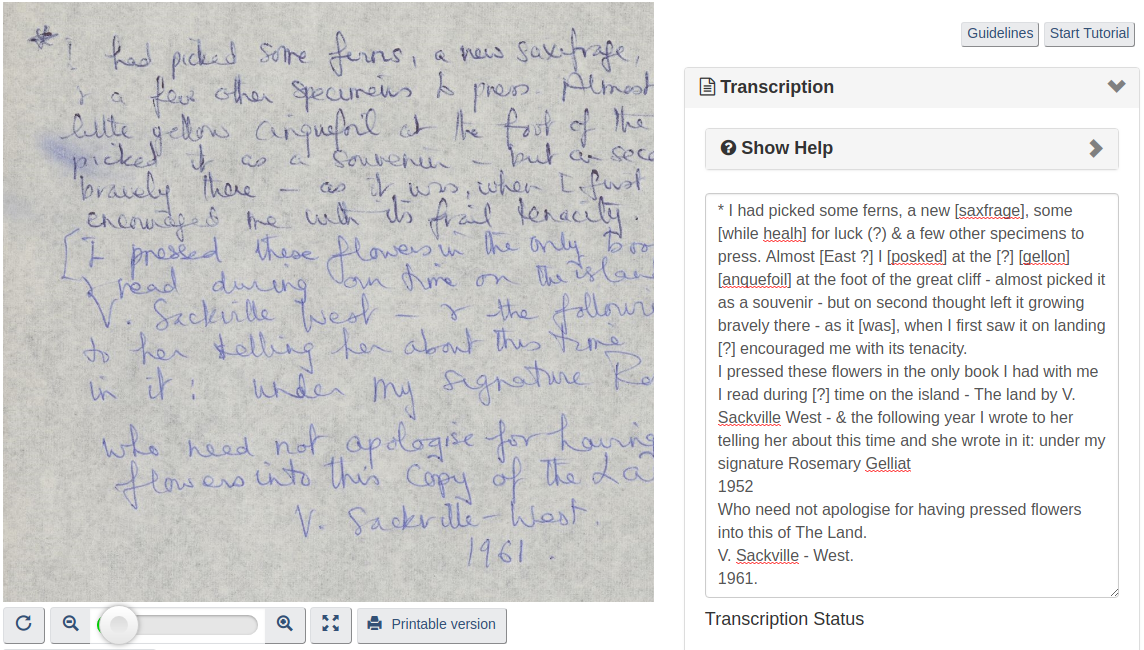 * I had picked some ferns, a new saxifrage,
& a few other specimens to press. Almost
little yellow cinquefoil at the foot of the
picked it as a souvenir - but on seco
bravely there - as it was, when I first
encouraged me with its frail tenacity.
[I pressed these flowers in the only boo
& read during our time on the islan
V. Sackville West - & the followi
to her telling her about this time
in it: under my signature Ro
who need not apologise for having
flowers into this copy of the La
V. Sackville-West.
1961.
Printable version
Guidelines Start Tutorial
Transcription
Show Help
* I had picked some ferns, a new [saxfrage], some
[while healh] for luck (?) & a few other specimens to
press. Almost [East ?] I [posked] at the [?] [gellon]
[anquefoil] at the foot of the great cliff - almost picked it
as a souvenir - but on second thought left it growing
bravely there - as it [was], when I first saw it on landing
[?] encouraged me with its tenacity.
I pressed these flowers in the only book I had with me
I read during [?] time on the island - The land by V.
Sackville West - & the following year I wrote to her
telling her about this time and she wrote in it: under my
signature Rosemary Gelliat
1952
Who need not apologise for having pressed flowers
into this of The Land.
V. Sackville - West.
1961.
Transcription Status